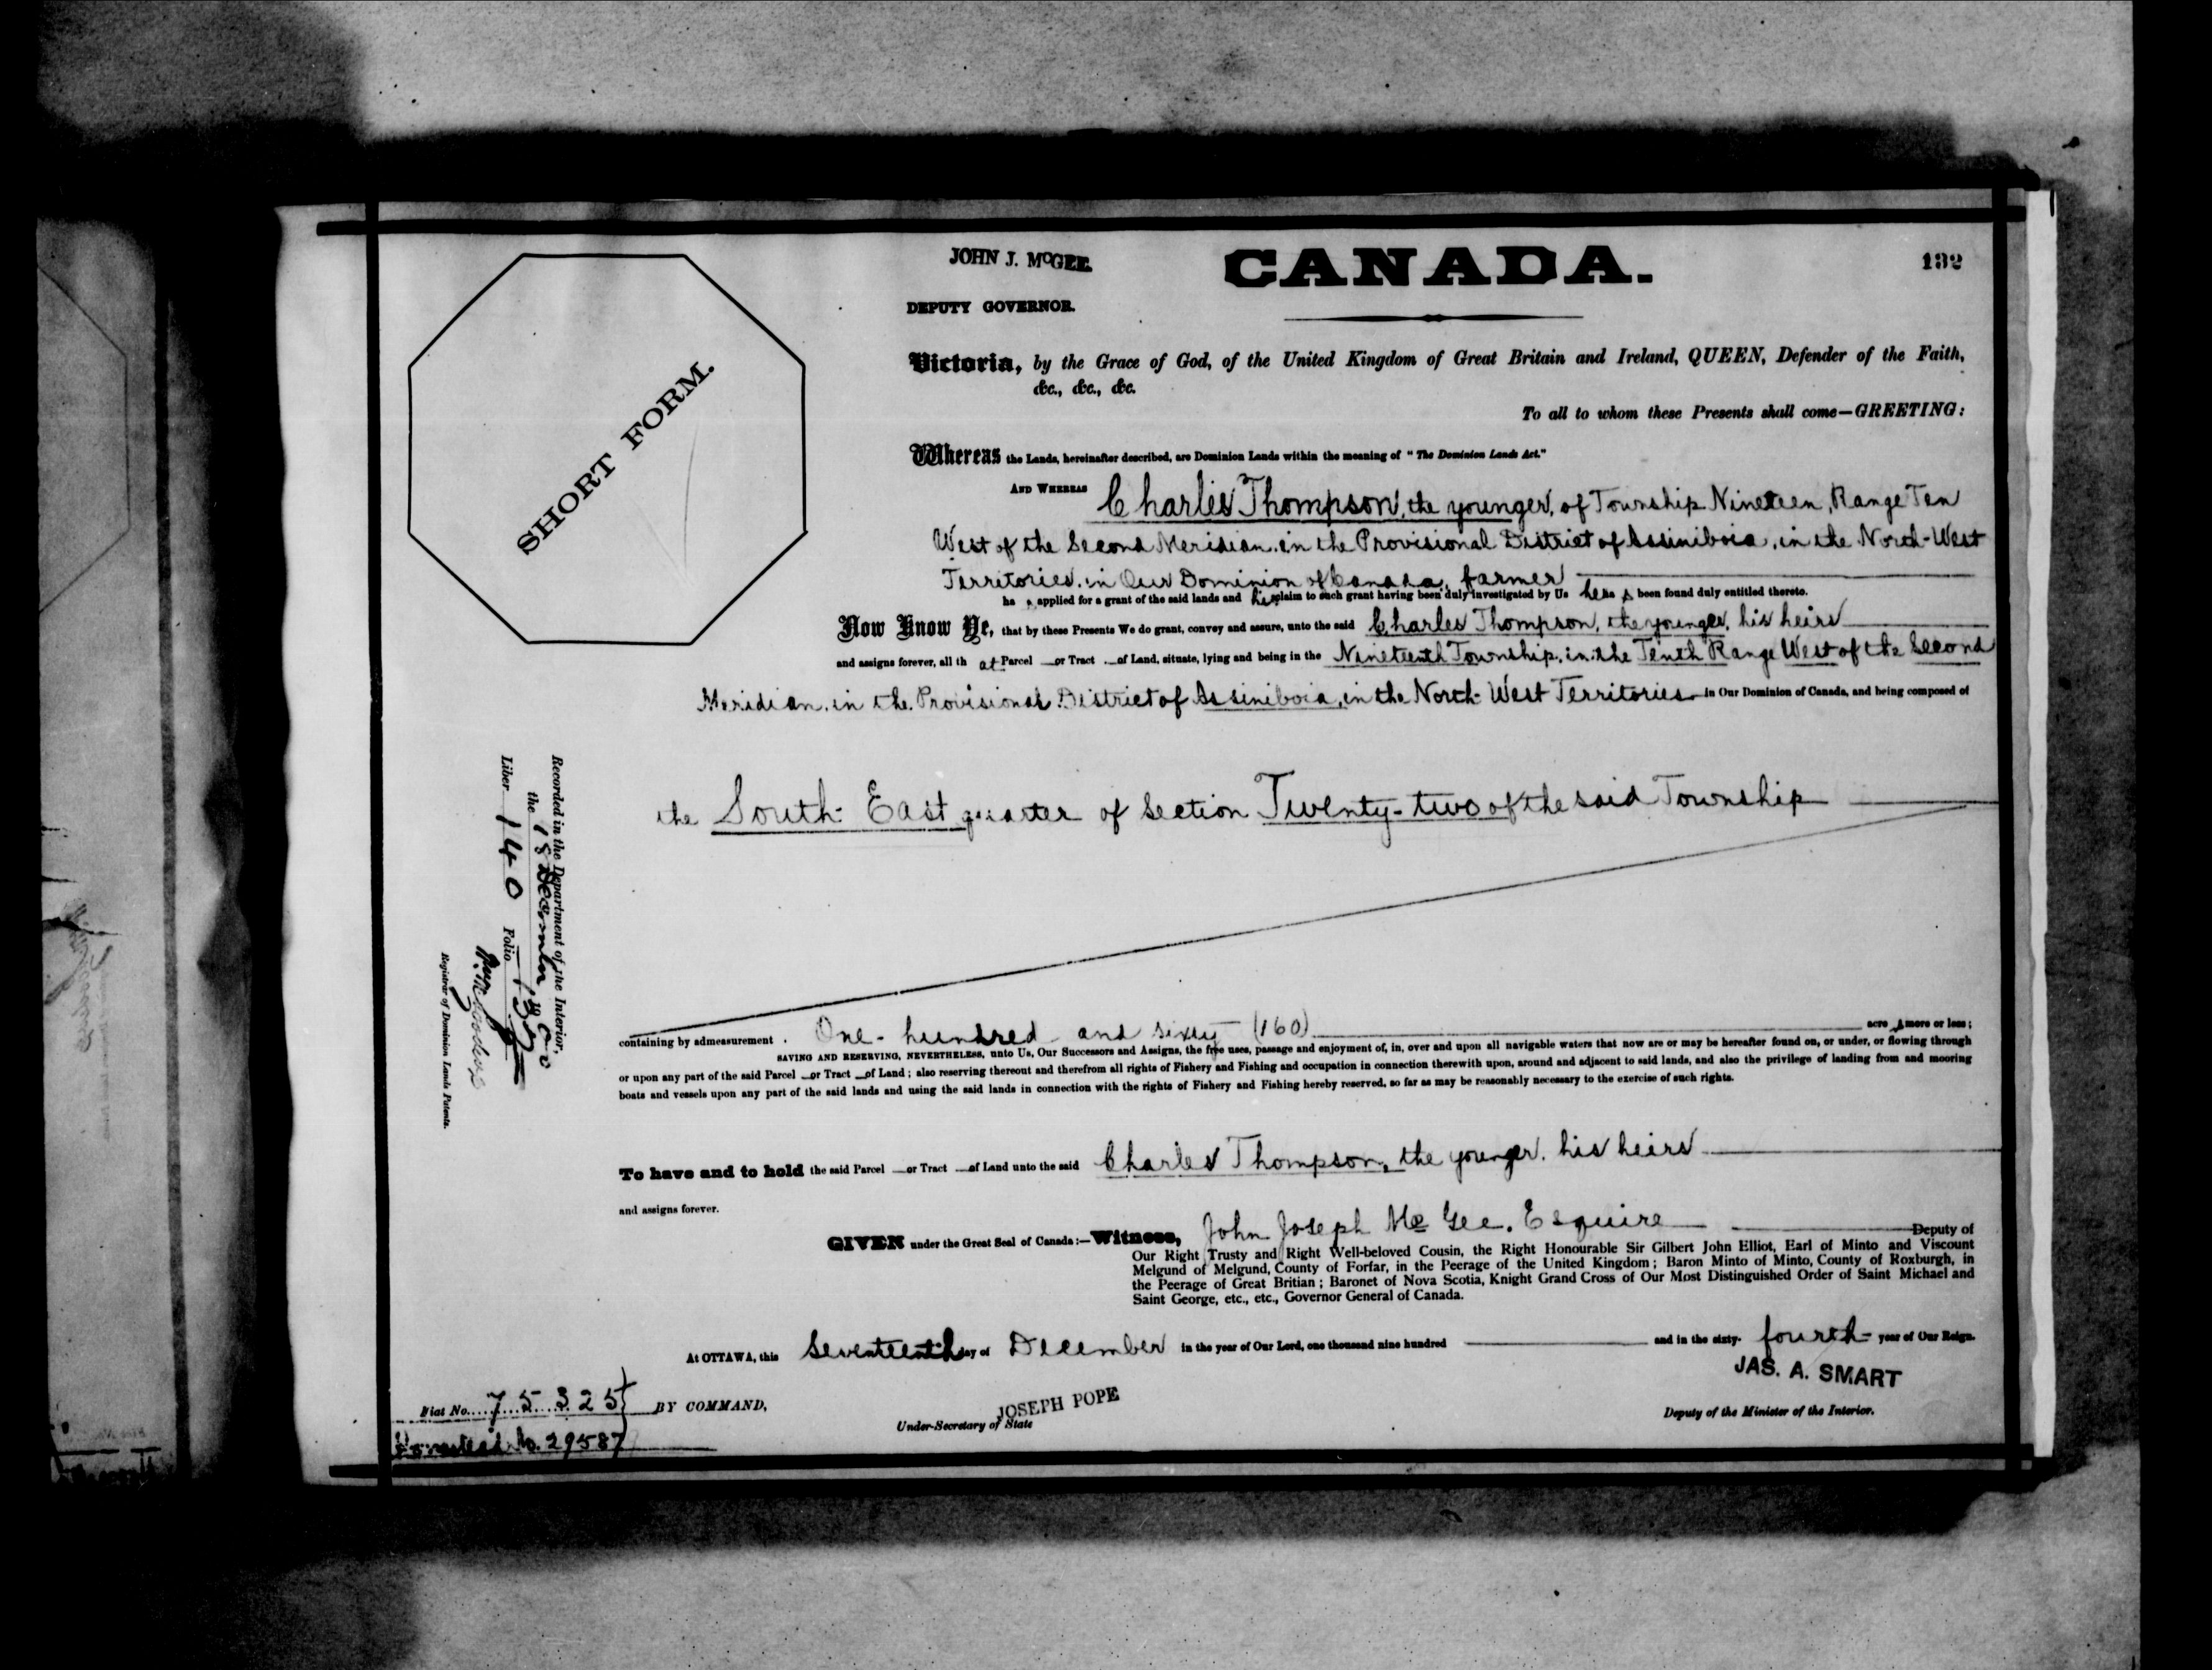 JOHN J. McGEE.
DEPUTY GOVERNOR.
CANADA.
132
SHORT FORM.
Victoria, by the Grace of God, of the United Kingdom of Great Britain and Ireland, QUEEN, Defender of the Faith,
&c., &c., &c.
To all to whom these Presents shall come—GREETING:
Whereas the Lands, hereinafter described, are Dominion Lands within the meaning of "The Dominion Lands Act."
AND WHEREAS Charles Thompson, the younger, of Township Nineteen, Range Ten
West of the Second Meridian, in the Provisional District of Assiniboia, in the North-West
Territories, in Our Dominion of Canada, farmer
ha s applied for a grant of the said lands and his claim to such grant having been duly investigated by Us he ha s been found duly entitled thereto.
Now Know Ye, that by these Presents We do grant, convey and assure, unto the said Charles Thompson, the younger, his heirs
and assigns forever, all th at Parcel or Tract of Land, situate, lying and being in the Nineteenth Township, in the Tenth Range West of the Second
Meridian, in the Provisional District of Assiniboia, in the North-West Territories in Our Dominion of Canada, and being composed of
the South-East quarter of Section Twenty-two of the said Township
containing by admeasurement One hundred and sixty (160) acre s more or less;
SAVING AND RESERVING, NEVERTHELESS, unto Us, Our Successors and Assigns, the free uses, passage and enjoyment of, in, over and upon all navigable waters that now are or may be hereafter found on, or under, or flowing through
or upon any part of the said Parcel or Tract of Land; also reserving thereout and therefrom all rights of Fishery and Fishing and occupation in connection therewith upon, around and adjacent to said lands, and also the privilege of landing from and mooring
boats and vessels upon any part of the said lands and using the said lands in connection with the rights of Fishery and Fishing hereby reserved, so far as may be reasonably necessary to the exercise of such rights.
To have and to hold the said Parcel or Tract of Land unto the said Charles Thompson, the younger, his heirs
and assigns forever.
GIVEN under the Great Seal of Canada:—Witness, John Joseph McGee, Esquire Deputy of
Our Right Trusty and Right Well-beloved Cousin, the Right Honourable Sir Gilbert John Elliot, Earl of Minto and Viscount
Melgund of Melgund, County of Forfar, in the Peerage of the United Kingdom; Baron Minto of Minto, County of Roxburgh, in
the Peerage of Great Britian; Baronet of Nova Scotia, Knight Grand Cross of Our Most Distinguished Order of Saint Michael and
Saint George, etc., etc., Governor General of Canada.
At OTTAWA, this Seventeenth day of December in the year of Our Lord, one thousand nine hundred and in the sixty- fourth year of Our Reign.
JAS. A. SMART
Deputy of the Minister of the Interior.
BY COMMAND,
JOSEPH POPE
Under-Secretary of State
Fiat No. 75325
Homestead No. 29587
Recorded in the Department of the Interior,
the 18 December
Liber 140 Folio
Registrar of Dominion Lands Patents.